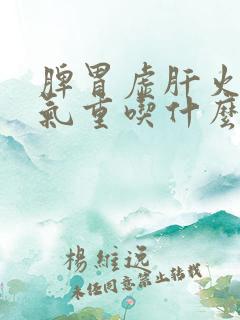 脾胃虚肝火
氣重喫什麼
楊維远
未经同意禁止转载